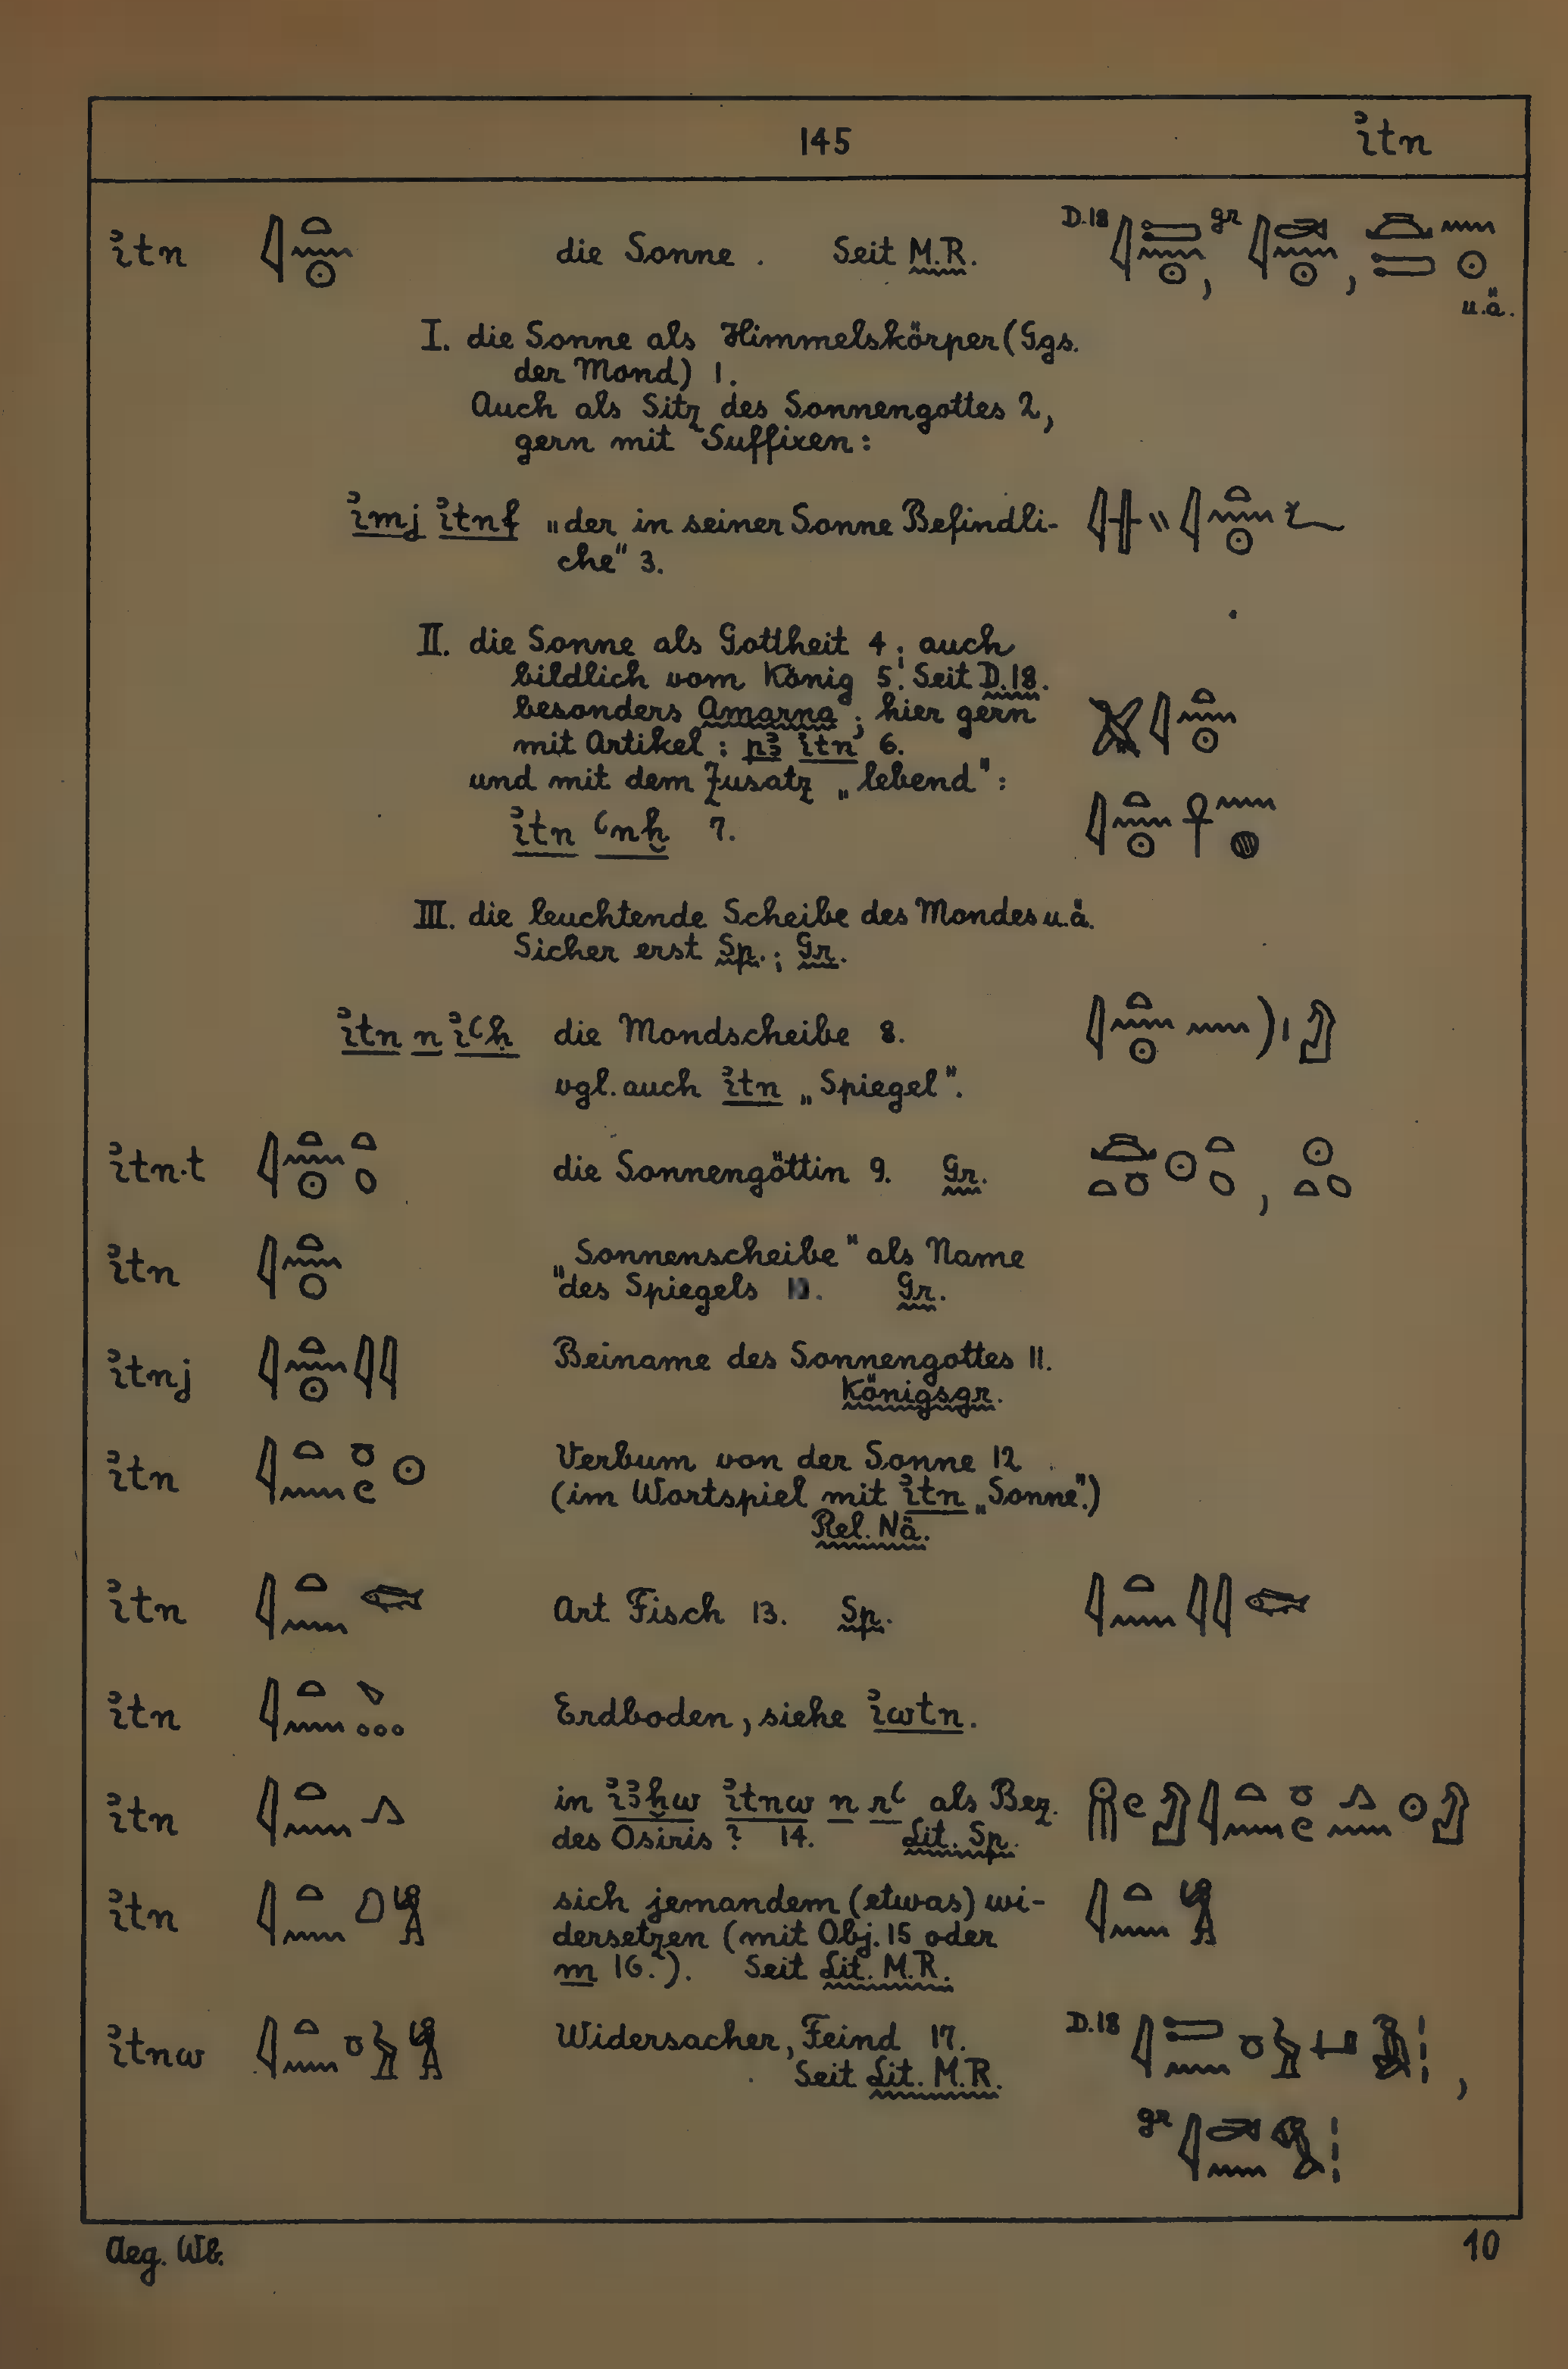 145 ꞽtn
ꞽtn 𓇋𓏏𓈖𓇳 die Sonne. Seit M.R. D.18 𓇋𓍿𓈖𓇳, gr
u.ä.
I. die Sonne als Himmelskörper (Ggs.
der Mond) 1.
Auch als Sitz des Sonnengottes 2,
gern mit Suffixen:
ꞽmj ꞽtnf „der in seiner Sonne Befindli- 𓇋𓏶𓏭𓇋𓏏𓈖𓇳𓆑
che" 3.
II. die Sonne als Gottheit 4; auch
bildlich vom König 5. Seit D.18.
besonders Amarna; hier gern 𓅮𓇋𓏏𓈖𓇳
mit Artikel: pꜣ ꞽtn 6.
und mit dem Zusatz „lebend":
ꞽtn ꜥnḫ 7. 𓇋𓏏𓈖𓇳𓋹𓈖𓐍
III. die leuchtende Scheibe des Mondes u.ä.
Sicher erst Sp.; Gr.
ꞽtn n ꞽꜥḥ die Mondscheibe 8.
vgl. auch ꞽtn „Spiegel".
ꞽtn·t 𓇋𓏏𓈖𓇳𓏏𓆇 die Sonnengöttin 9. Gr.
ꞽtn 𓇋𓏏𓈖 „Sonnenscheibe" als Name
des Spiegels 10. Gr.
ꞽtnj 𓇋𓏏𓈖𓇳𓇋𓇋 Beiname des Sonnengottes 11.
Königsgr.
ꞽtn 𓇋𓏏𓈖𓏌𓏲𓇳 Verbum von der Sonne 12
(im Wortspiel mit ꞽtn „Sonne".)
Rel. Nä.
ꞽtn 𓇋𓏏𓈖𓆛 Art Fisch 13. Sp. 𓇋𓏏𓈖𓇋𓇋𓆛
ꞽtn 𓇋𓏏𓈖 Erdboden, siehe ꞽwtn.
ꞽtn 𓇋𓏏𓈖𓂻 in ꞽꜣḫw ꞽtnw n rꜥ als Bez.
des Osiris? 14. Lit. Sp.
ꞽtn 𓇋𓏏𓈖 sich jemandem (etwas) wi- 𓇋𓏏𓈖𓀜
dersetzen (mit Obj. 15 oder
m 16.). Seit Lit. M.R.
ꞽtnw 𓇋𓏏𓈖𓏌𓅱𓀜 Widersacher, Feind 17. D.18
Seit Lit. M.R.
gr
Aeg. Wb. 10